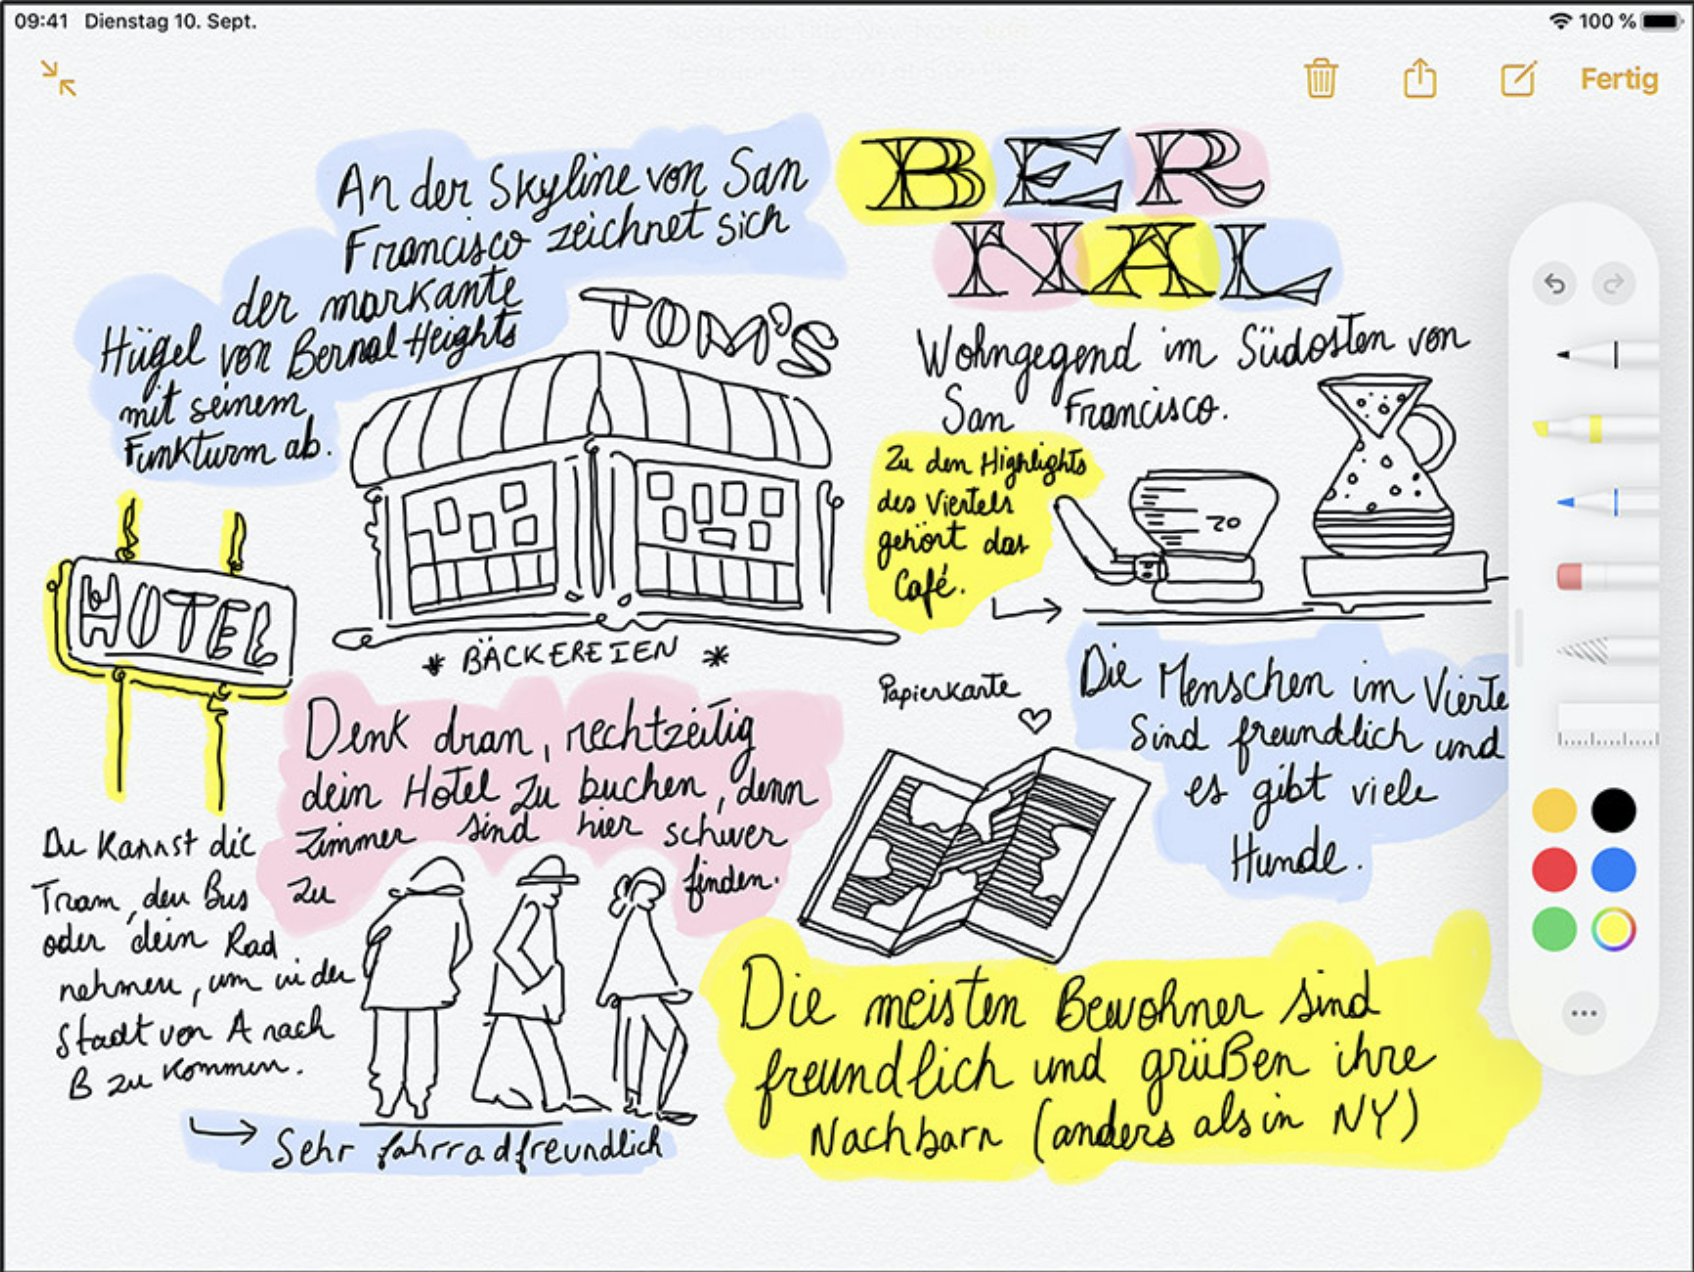 09:41 Dienstag 10. Sept.
100 %
Fertig
An der Skyline von San
Francisco zeichnet sich
der markante
Hügel von Bernal Heights
mit seinem
Funkturm ab.
BER
NAL
Wohngegend im Südosten von
San Francisco.
TOM'S
Zu den Highlights
des Viertels
gehört das
Café.
20
HOTEL
* BÄCKEREIEN *
Denk dran, rechtzeitig
dein Hotel zu buchen, denn
Zimmer sind hier schwer
zu finden.
Papierkarte
Die Menschen im Vierte
Sind freundlich und
es gibt viele
Hunde.
Du Kannst die
Tram, den Bus
oder dein Rad
nehmen, um in der
Stadt von A nach
B zu kommen.
Sehr fahrradfreundlich
Die meisten Bewohner sind
freundlich und grüßen ihre
Nachbarn (anders als in NY)